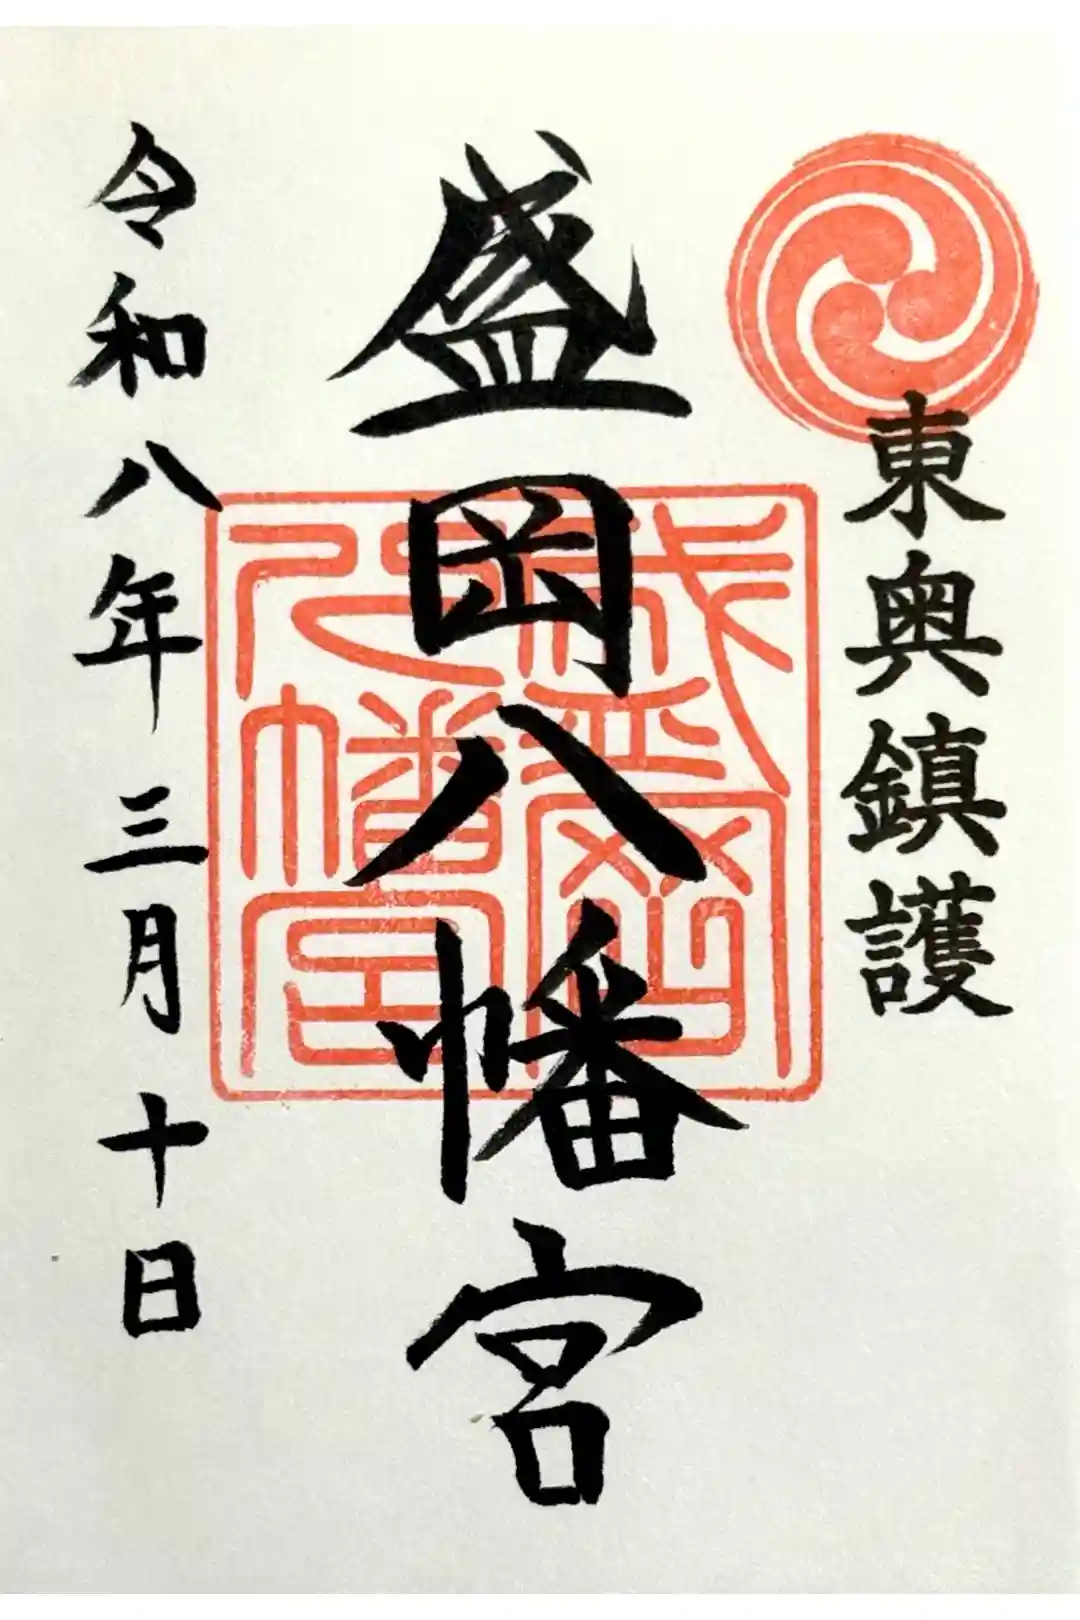 東奥鎮護
盛岡八幡宮
盛岡八幡宮
令和八年三月十日